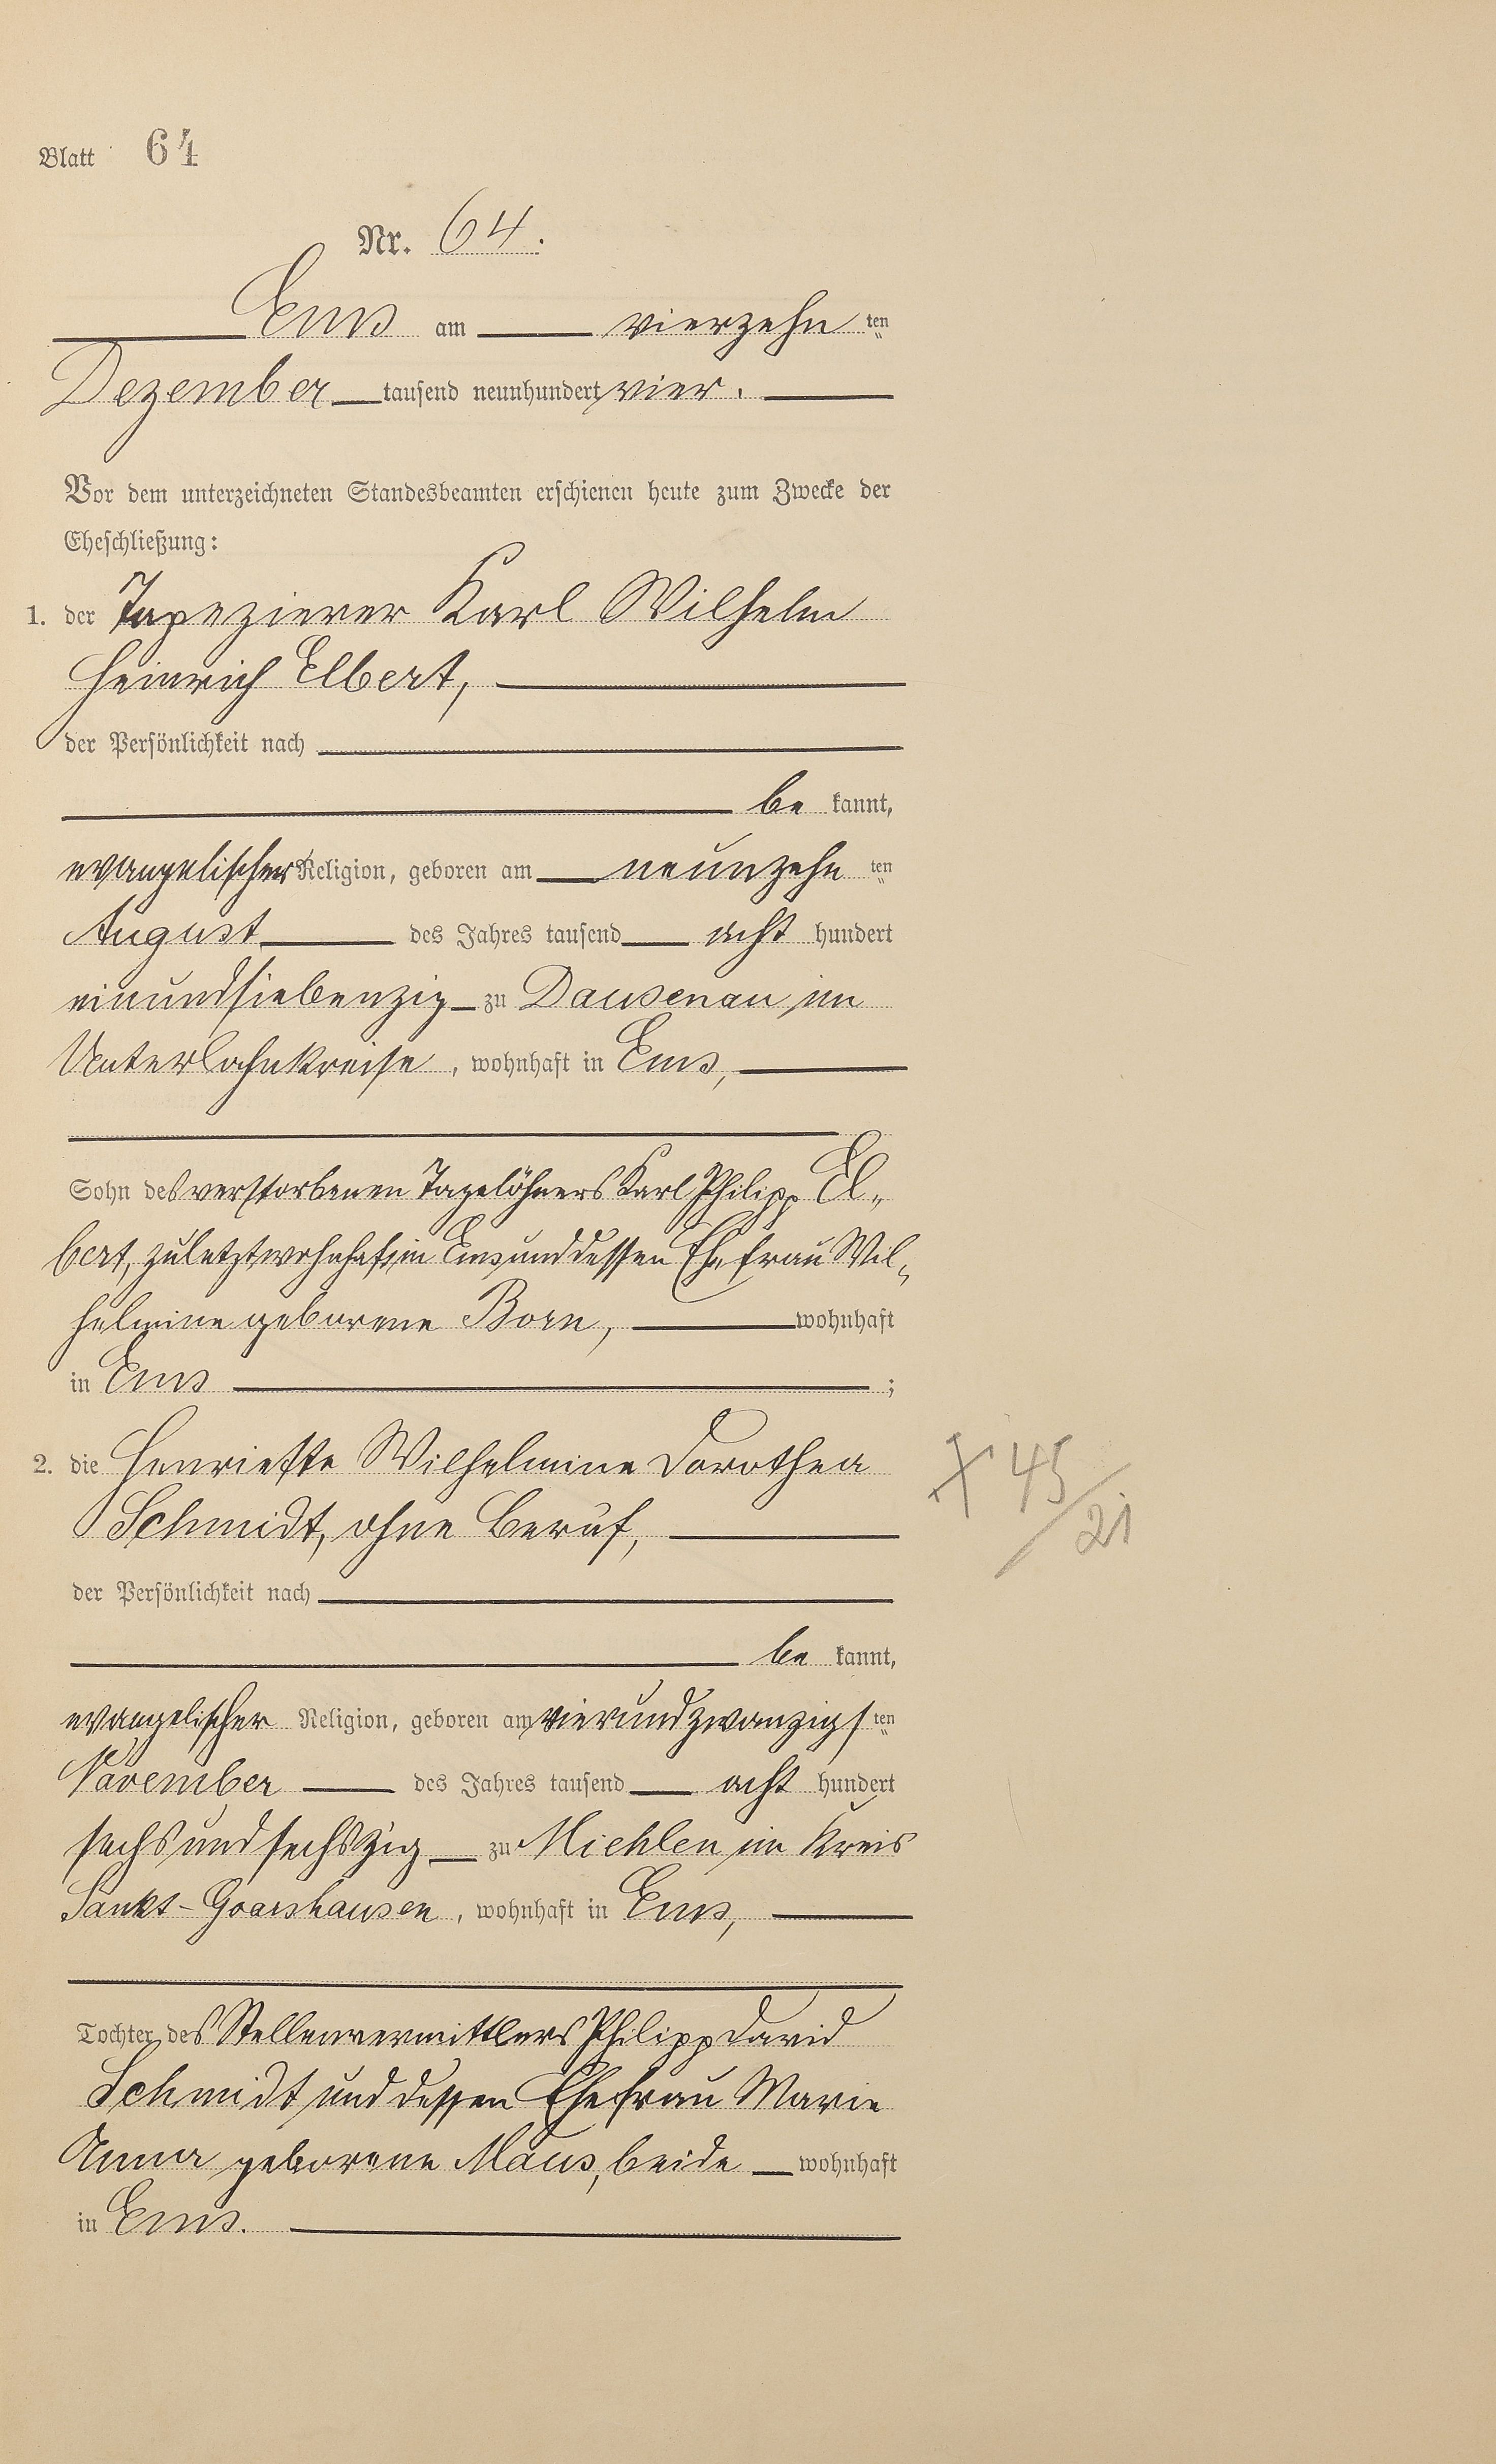 Blatt 64
Nr. 64.
Ems am vierzehn ten
Dezember tausend neunhundert vier.
Vor dem unterzeichneten Standesbeamten erschienen heute zum Zwecke der
Eheschließung:
1. der Tapezierer Karl Wilhelm
Heinrich Elbert,
der Persönlichkeit nach
be kannt,
evangelischer Religion, geboren am neunzehn ten
August des Jahres tausend acht hundert
einundsiebenzig zu Dausenau im
Unterlahnkreise, wohnhaft in Ems,
Sohn des verstorbenen Tagelöhners Karl Philipp El„
bert, zuletzt wohnhaft in Ems und dessen Ehefrau Wil„
helmine geborene Born, wohnhaft
in Ems ;
2. die Henriette Wilhelmine Dorothea
Schmidt, ohne Beruf,
der Persönlichkeit nach
be kannt,
evangelischer Religion, geboren am vierundzwanzigs ten
November des Jahres tausend acht hundert
sechsundsechszig zu Miehlen im Kreis
Sankt-Goarshausen, wohnhaft in Ems,
Tochter des Stellenvermittlers Philipp David
Schmidt und dessen Ehefrau Marie
Anna geborene Maus, beide wohnhaft
in Ems.
45/21